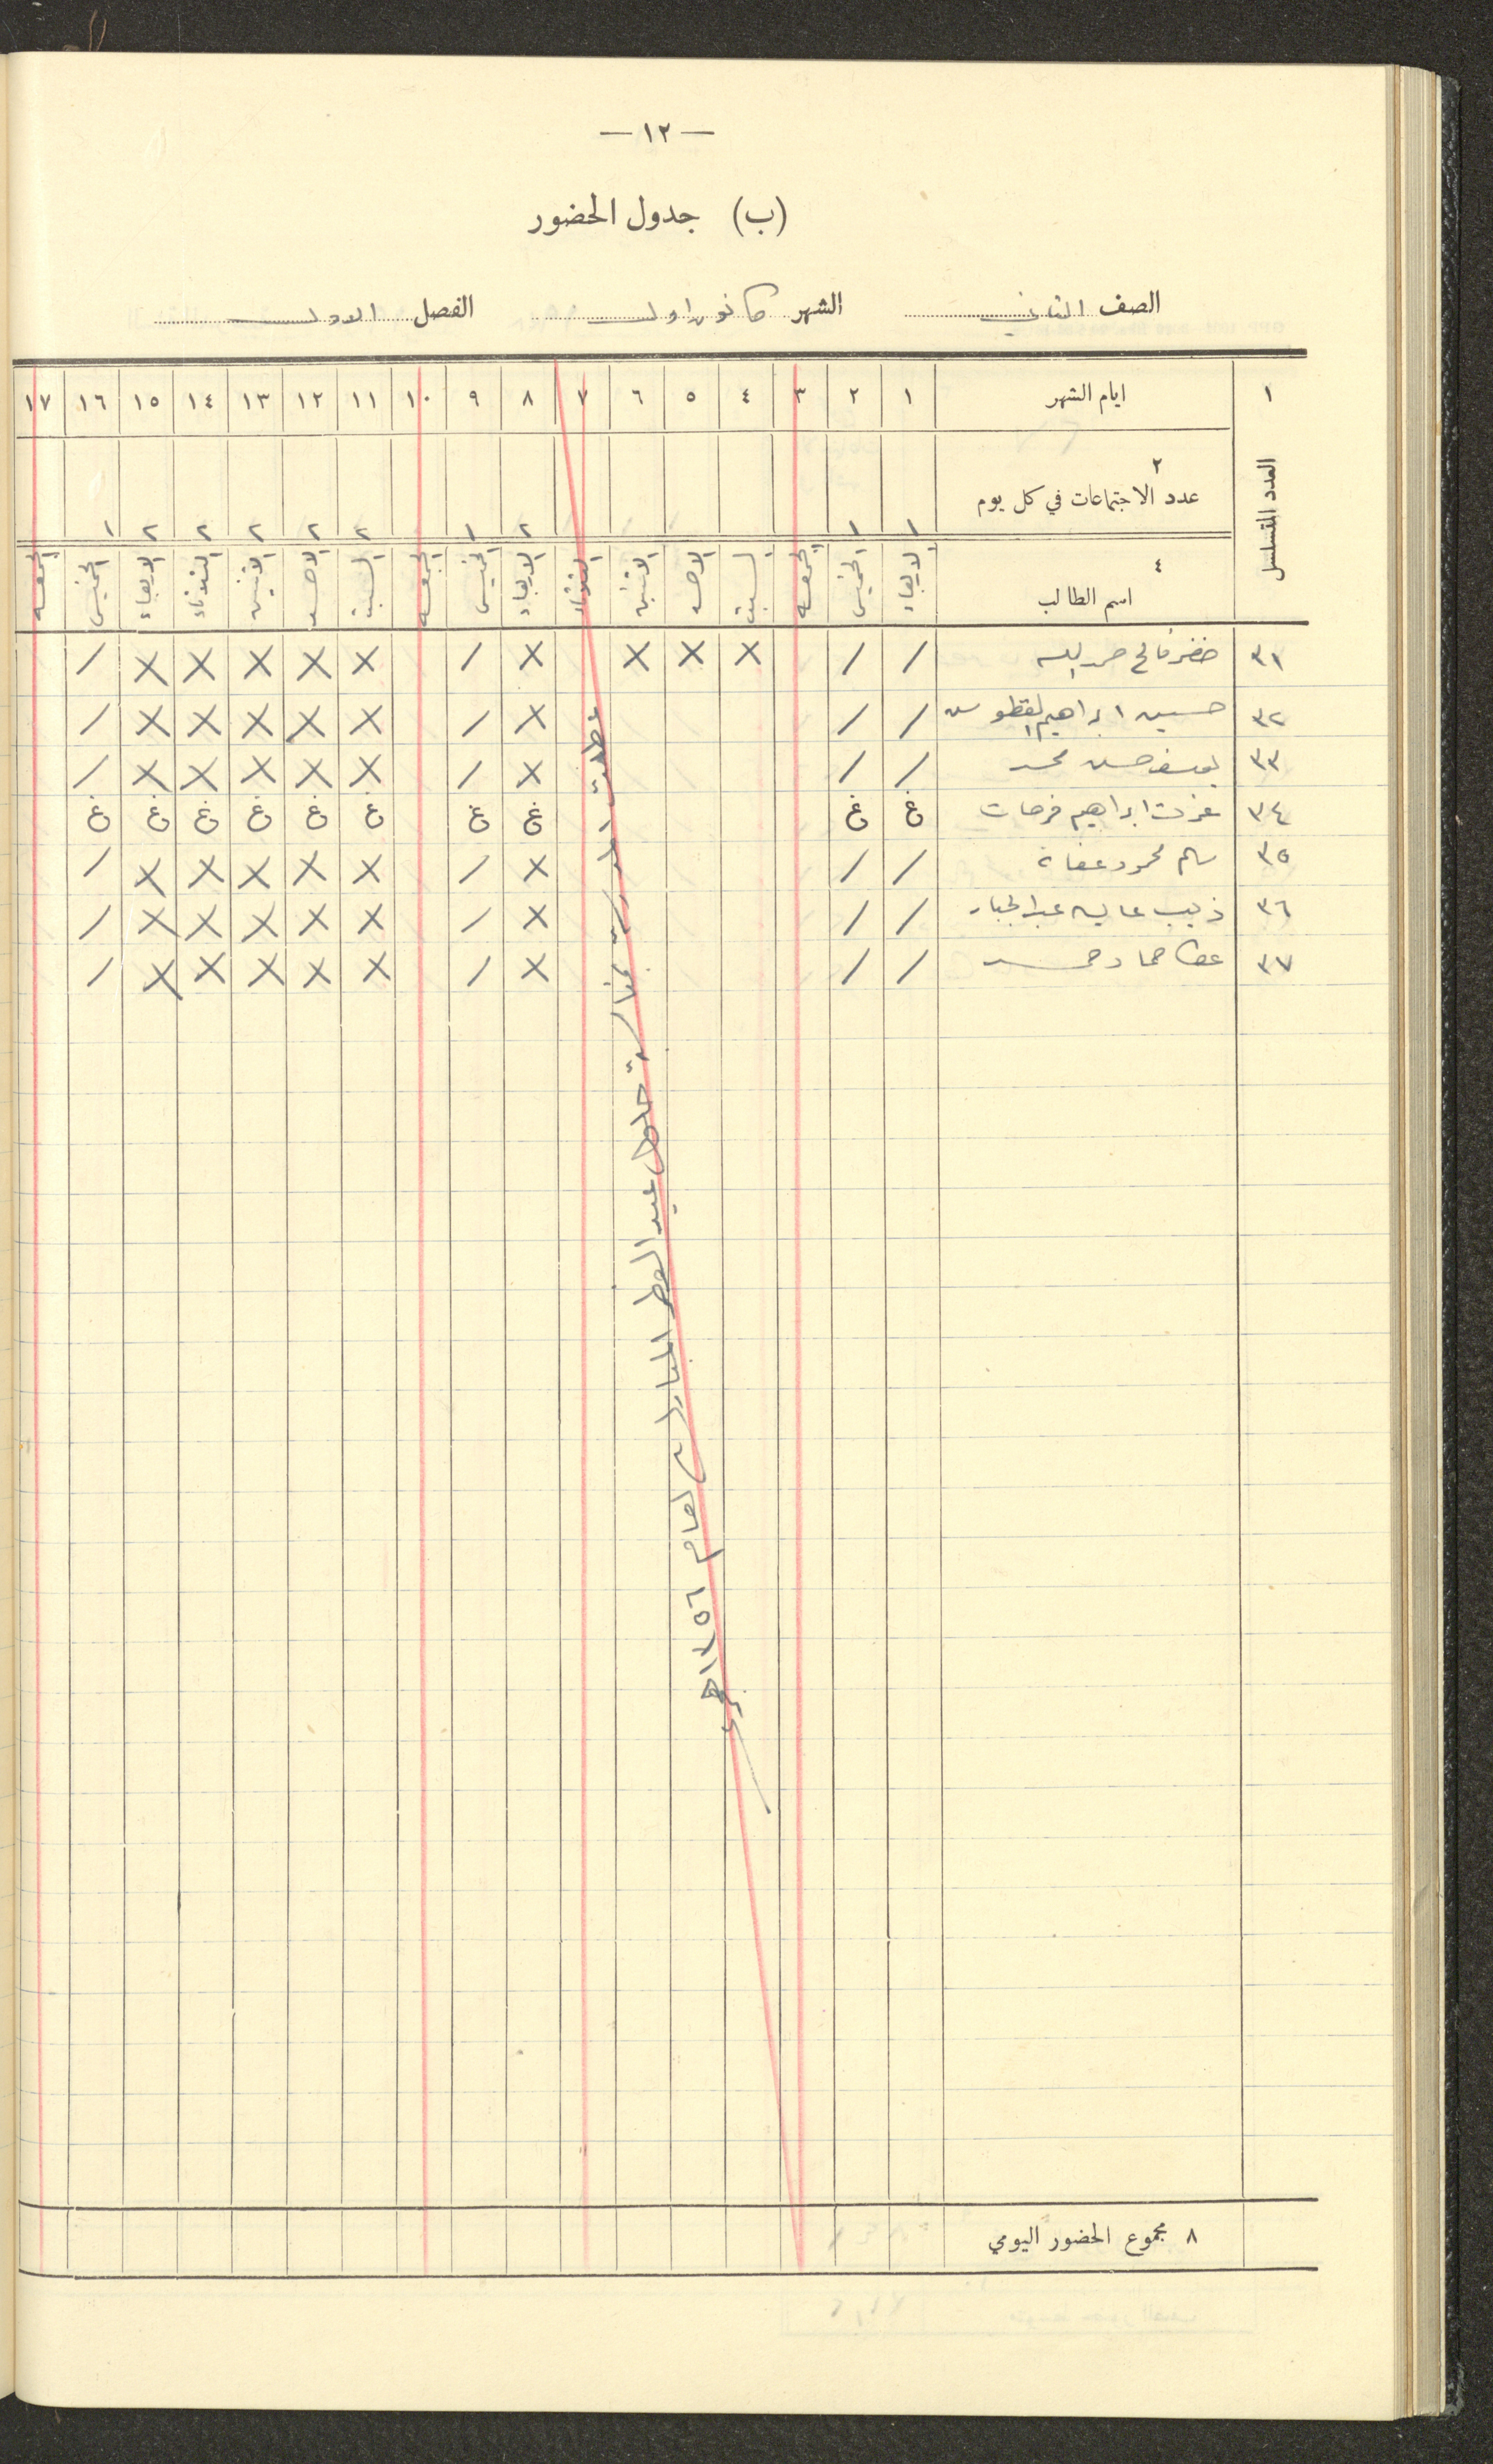 — ١٢ —
(ب) جدول الحضور
الصف الثاني الشهر كانون اول الفصل الاول
١ ايام الشهر ١ ٢ ٣ ٤ ٥ ٦ ٧ ٨ ٩ ١٠ ١١ ١٢ ١٣ ١٤ ١٥ ١٦ ١٧
العدد المتسلسل
٢
عدد الاجتماعات في كل يوم ١ ١ ٢ ١ ٢ ٢ ٢ ٢ ٢ ١
٤
اسم الطالب الاربعاء الخميس الجمعه السبت الاحد الاثنين الثلاثاء الاربعاء الخميس الجمعه السبت الاحد الاثنين الثلاثاء الاربعاء الخميس الجمعه
٣١ خضر فالح / / X X X X / X X X X X /
٣٢ حسين ابراهيم / / X / X X X X X /
٣٣ يوسف حسن محمد / / X / X X X X X /
٣٤ عزت ابراهيم فرحات غ غ غ غ غ غ غ غ غ غ
٣٥ سالم محمود عفانة / / X / X X X X X /
٣٦ ذيب عايد عبد الجبار / / X / X X X X X /
٣٧ عطا حماد حمد / / X / X X X X X /
عطلت المدرسة بمناسبة حلول عيد الفطر المبارك لعام ١٣٥٦ هجري
٨ مجموع الحضور اليومي